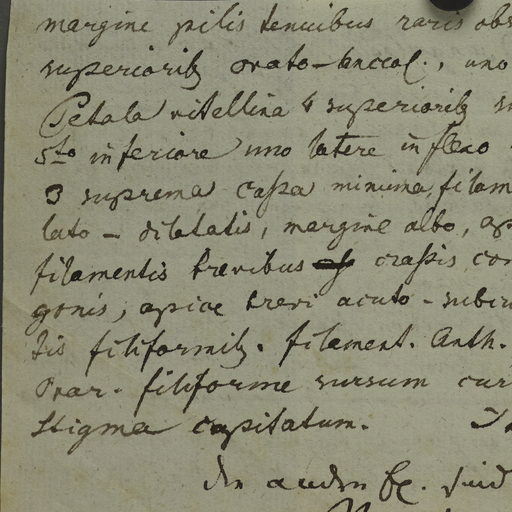 margine pilis tenuibus raris obs
superiorib; ovato-lanceol., uno
Petala vitellina 4 superiorib; su
5to inferiore uno latere inflexo
3 suprema cassa minima, filam
lato - dilatatis, margine albo, ap
filamentis brevibus crassis con
gonis, apice brevi acuto - subin
tis filiformib;. filament. Anth.
Ovar. filiforme sursum cur
Stigma capitatum.